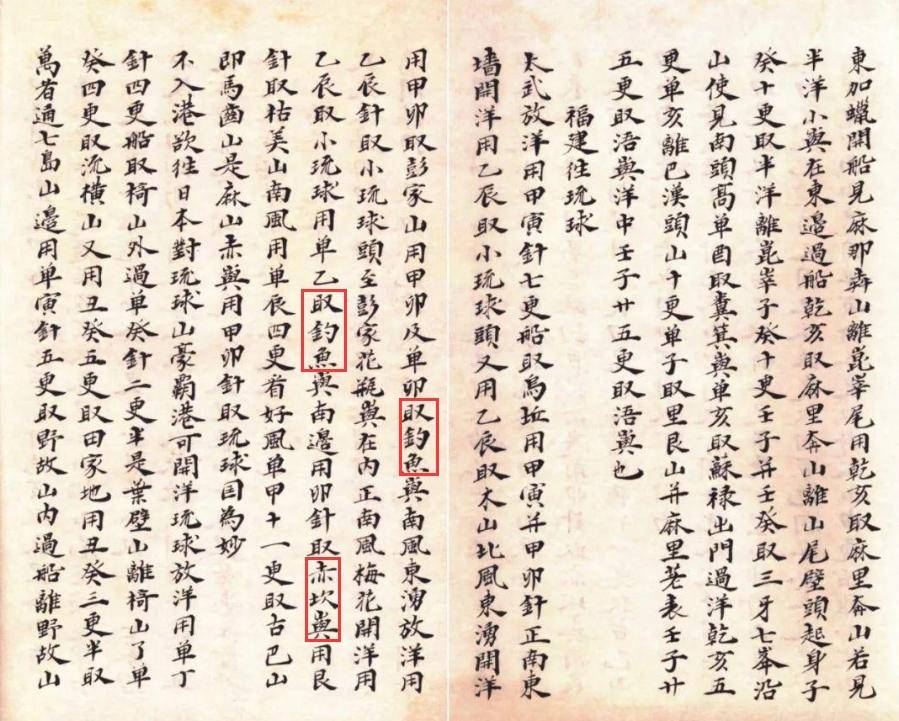 東加蠟開船見麻那犇山離崑峷尾用乾亥取麻里奔山若見
半洋小㠘在東邉過船乾亥取麻里奔山離山尾壁頭起身子
癸十更取半洋離崑峷子癸十更壬子并壬癸取三牙七峯沿
山使見南頭高单酉取糞箕㠘单亥取蘇祿出門過洋乾亥五
更单亥離巳漢頭山十更单子取里艮山并麻里荖表壬子廿
五更取浯㠘洋中壬子廿五更取浯㠘也
福建徃琉球
太武放洋用甲寅針七更船取烏坵用甲寅并甲卯針正南東
墻開洋用乙辰取小琉球頭又用乙辰取木山北風東湧開洋
用甲卯取彭家山用甲卯及单卯取釣魚㠘南風東湧放洋用
乙辰針取小琉球頭至彭家花瓶㠘在内正南風梅花開洋用
乙辰取小琉球用单乙取釣魚㠘南邉用卯針取赤坎㠘用艮
針取枯美山南風用单辰四更看好風单甲十一更取古巴山
即馬齒山是麻山赤㠘用甲卯針取琉球国為妙
不入港欲徃日本對琉球山豪覇港可開洋琉球放洋用单丁
針四更船取椅山外過单癸針二更半是葉壁山離椅山了单
癸四更取流横山又用丑癸五更取田家地用丑癸三更半取
萬者通七島山邉用单寅針五更取野故山内過船離野故山